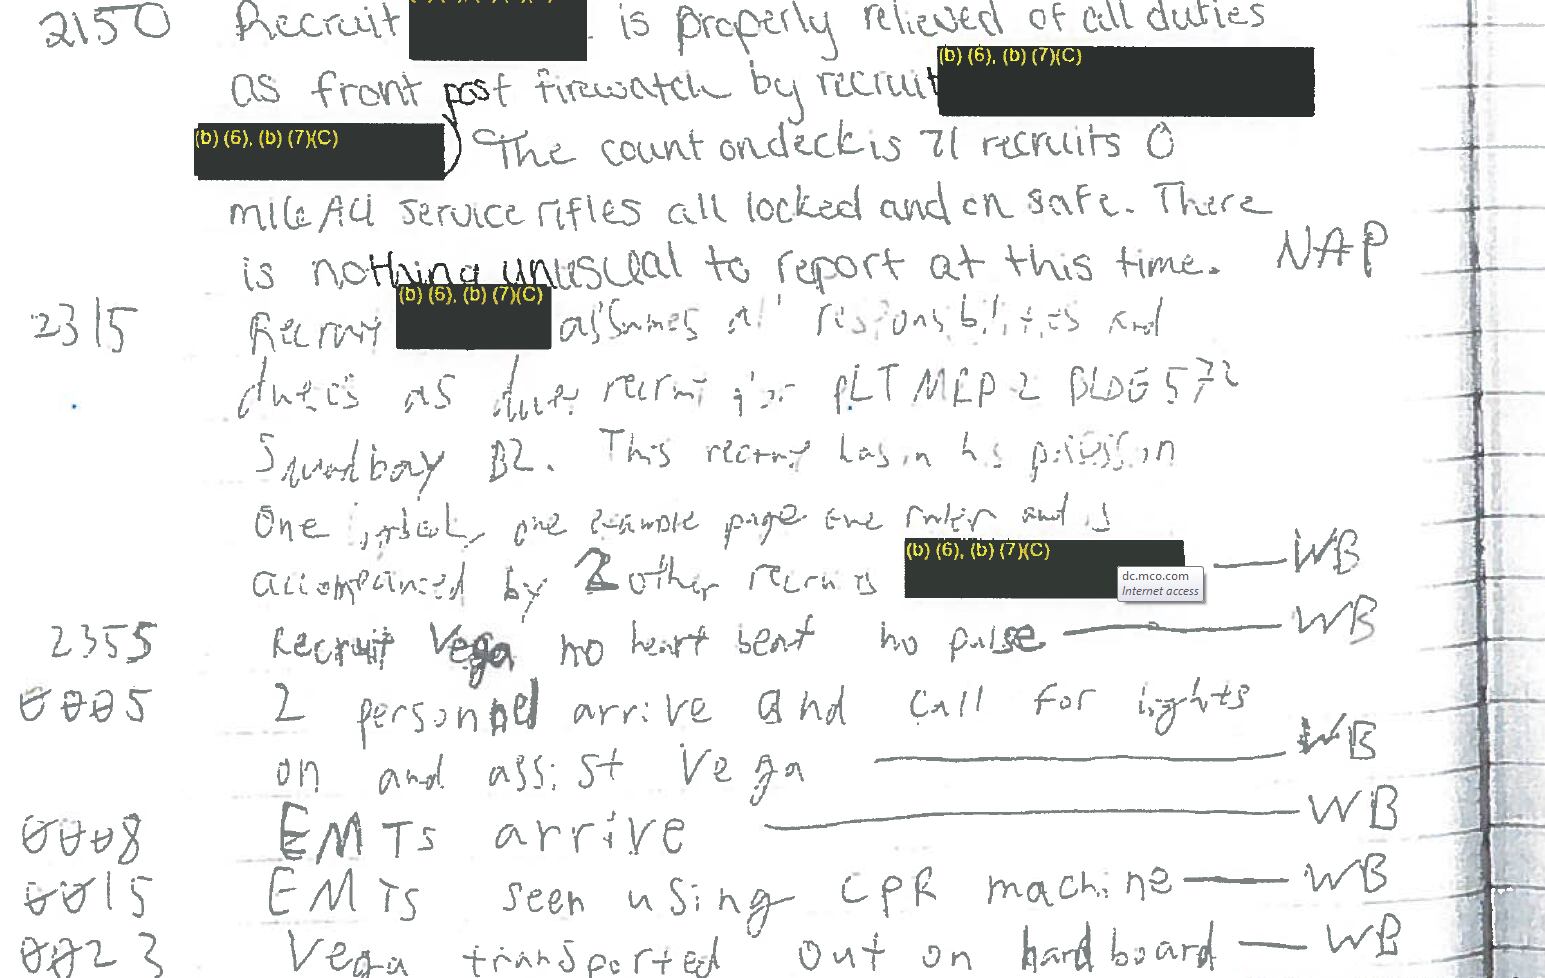 2150 Recruit is properly relieved of all duties
(b) (6), (b) (7)(C)
as front post firewatch by recruit
(b) (6), (b) (7)(C) The count ondeck is 71 recruits 0
service rifles all locked and on safe. There
is nothing unusual to report at this time. NAP
2315 Recruit (b) (6), (b) (7)(C) assumes all responsibilities and
duties as duty recruit for PLT MRP-2 BLDG 572
Squadbay B2. This recruit has in his possession
One one example page one ruler and is
accompanied by 2 other recruits (b) (6), (b) (7)(C) WB
dc.mco.com
Internet access
2355 Recruit Vega no heart beat no pulse WB
0005 2 personnel arrive and call for lights
on and assist Vega WB
0008 EMTs arrive WB
0015 EMTs seen using CPR machine WB
0023 Vega transported out on hardboard WB